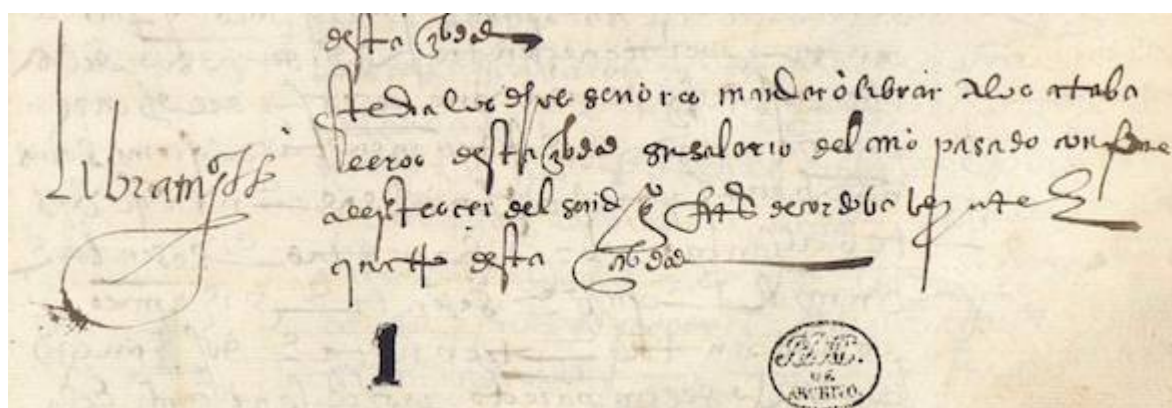 desta çibdad
este dia los dhos señores mandarō librar a los ataba
leros desta çibdad su salario del año pasado conforme
al del señor de cordoba veynte e
quatro desta çibdad
Libramyº
1
DE
ARCHIVO.